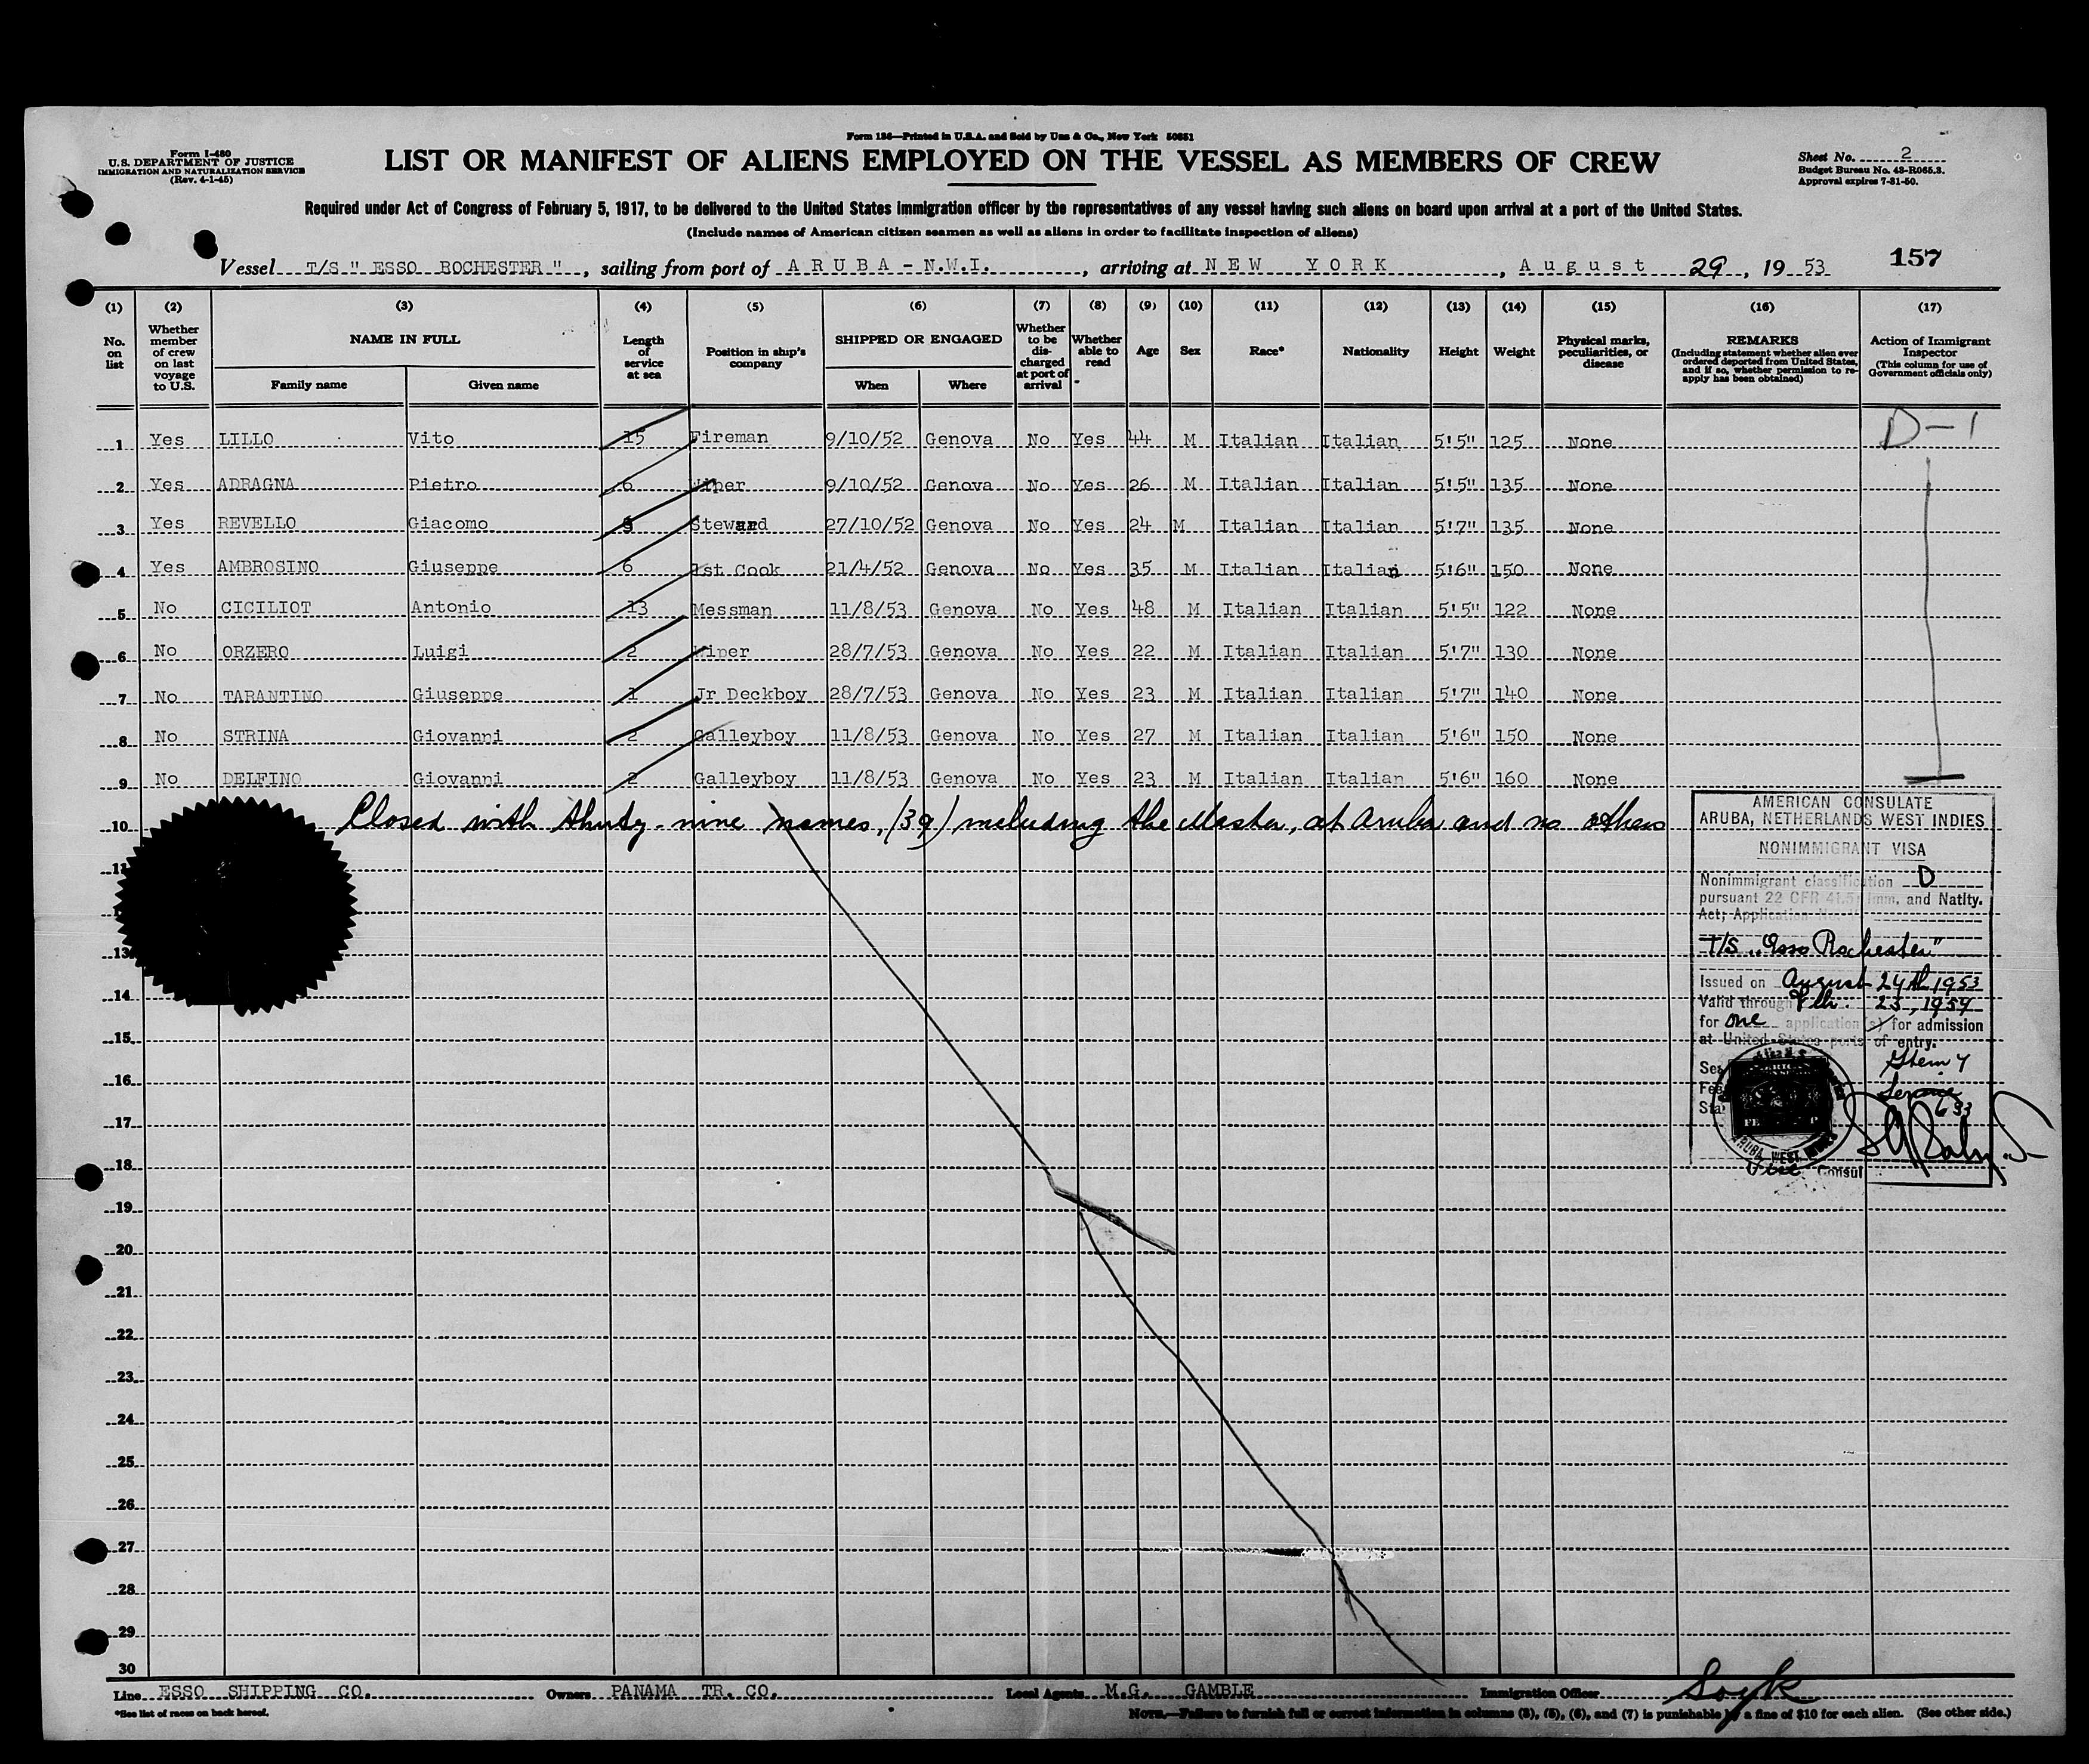 Form 126—Printed in U.S.A. and Sold by Unz & Co., New York 50651
Form I-480
U.S. DEPARTMENT OF JUSTICE
IMMIGRATION AND NATURALIZATION SERVICE
(Rev. 4-1-45)
LIST OR MANIFEST OF ALIENS EMPLOYED ON THE VESSEL AS MEMBERS OF CREW
Sheet No. 2
Budget Bureau No. 43-R065.3.
Approval expires 7-31-50.
Required under Act of Congress of February 5, 1917, to be delivered to the United States immigration officer by the representatives of any vessel having such aliens on board upon arrival at a port of the United States.
(Include names of American citizen seamen as well as aliens in order to facilitate inspection of aliens)
Vessel T/S " ESSO ROCHESTER ", sailing from port of ARUBA - N.W.I., arriving at NEW YORK, August 29, 1953
157
(1) (2) (3) (4) (5) (6) (7) (8) (9) (10) (11) (12) (13) (14) (15) (16) (17)
No. on list
Whether member of crew on last voyage to U.S.
NAME IN FULL
Family name Given name
Length of service at sea
Position in ship's company
SHIPPED OR ENGAGED
When Where
Whether to be discharged at port of arrival
Whether able to read
Age
Sex
Race*
Nationality
Height
Weight
Physical marks, peculiarities, or disease
REMARKS
(Including statement whether alien ever ordered deported from United States, and if so, whether permission to re-apply has been obtained)
Action of Immigrant Inspector
(This column for use of Government officials only)
1 Yes LILLO Vito 15 Fireman 9/10/52 Genova No Yes 44 M Italian Italian 5'5" 125 None D-1
2 Yes ADRAGNA Pietro 6 Wiper 9/10/52 Genova No Yes 26 M Italian Italian 5'5" 135 None
3 Yes REVELLO Giacomo Steward 27/10/52 Genova No Yes 24 M Italian Italian 5'7" 135 None
4 Yes AMBROSINO Giuseppe 6 1st Cook 21/4/52 Genova No Yes 35 M Italian Italian 5'6" 150 None
5 No CICILIOT Antonio 13 Messman 11/8/53 Genova No Yes 48 M Italian Italian 5'5" 122 None
6 No ORZERO Luigi 2 Wiper 28/7/53 Genova No Yes 22 M Italian Italian 5'7" 130 None
7 No TARANTINO Giuseppe 1 Jr Deckboy 28/7/53 Genova No Yes 23 M Italian Italian 5'7" 140 None
8 No STRINA Giovanni 2 Galleyboy 11/8/53 Genova No Yes 27 M Italian Italian 5'6" 150 None
9 No DELFINO Giovanni 2 Galleyboy 11/8/53 Genova No Yes 23 M Italian Italian 5'6" 160 None
10 Closed with thirty-nine names, (39) including the Master, at Aruba and no others
AMERICAN CONSULATE
ARUBA, NETHERLANDS WEST INDIES
NONIMMIGRANT VISA
Nonimmigrant classification D
pursuant 22 CFR 41.5 Imm. and Natlty.
Act; Application No. V
T/S "Esso Rochester"
Issued on August 24th 1953
Valid through Feb. 23, 1954
for one application(s) for admission
at United States ports of entry.
Item 7
Service
633
Vice Consul
11
13
14
15
16
17
18
19
20
21
22
23
24
25
26
27
28
29
30
Line ESSO SHIPPING CO. Owners PANAMA TR. CO. Local Agents M.G. GAMBLE Immigration Officer Soyk
*See list of races on back hereof.
NOTE.—Failure to furnish full or correct information in columns (3), (5), (6), and (7) is punishable by a fine of $10 for each alien. (See other side.)